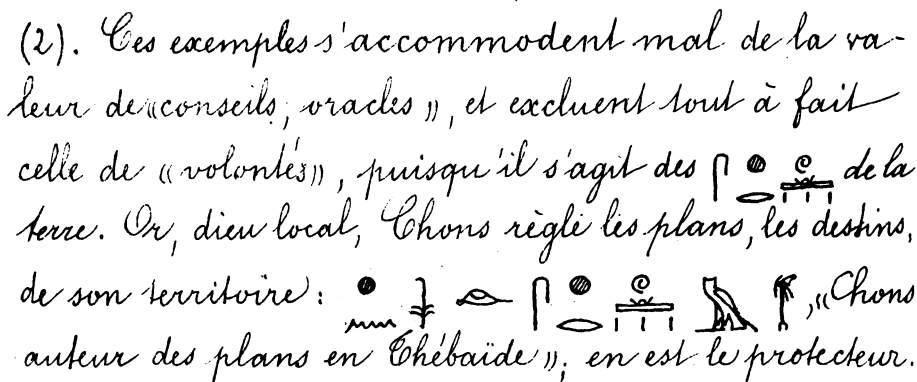 (2). Ces exemples s'accommodent mal de la va-
leur de «conseils, oracles», et excluent tout à fait
celle de «volontés», puisqu'il s'agit des 𓋴𓐍𓂋𓏲𓏛𓏥 de la
terre. Or, dieu local, Chons règle les plans, les destins,
de son territoire : 𓐍𓈖𓇓𓁹𓋴𓐍𓂋𓏲𓏛𓏥𓅓, «Chons
auteur des plans en Thébaïde», en est le protecteur.